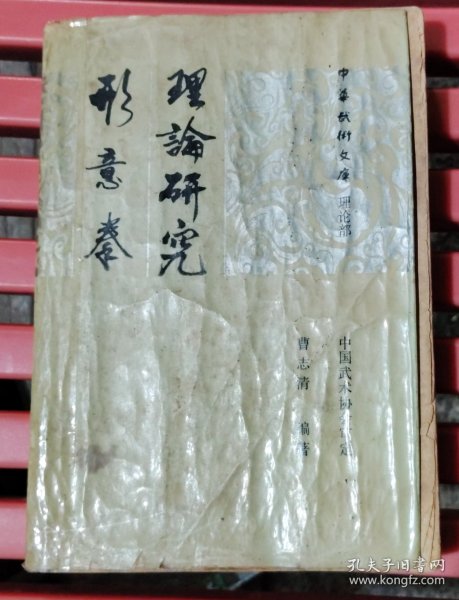 形意拳
理論研究
中華武術文庫 理论部
中国武术协会审定
曹志清 编著
孔夫子旧书网
www.kongfz.com